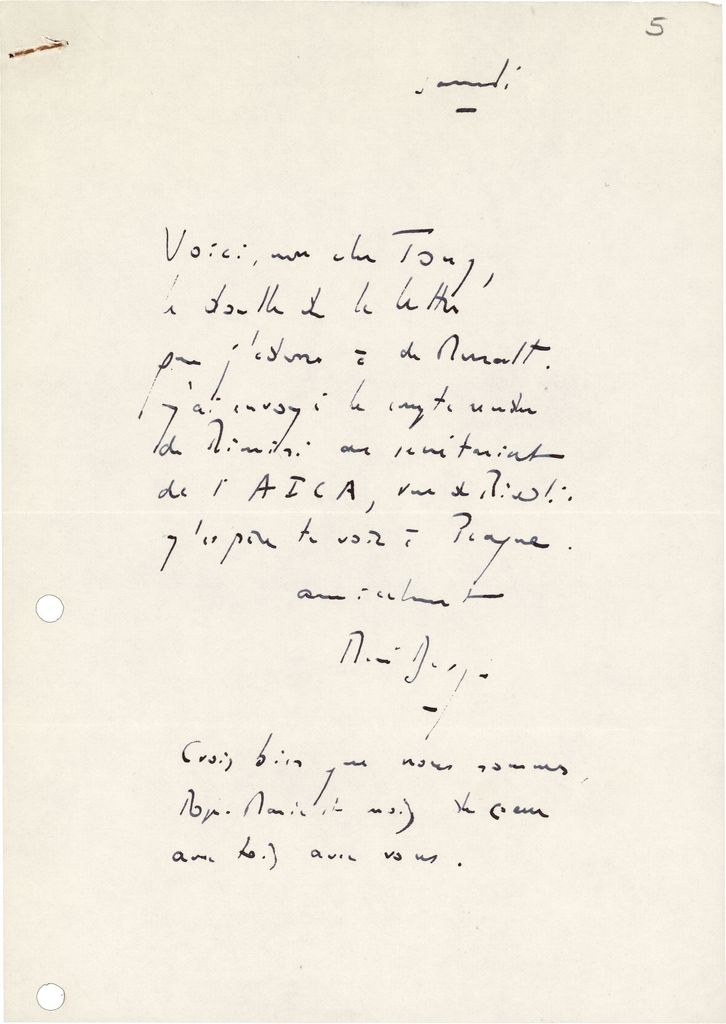 5
samedi
Voici, mon cher Tony,
le double de la lettre
que j'adresse à de Muralt.
J'ai envoyé le compte rendu
de Rimini au secrétariat
de l'AICA, rue de Rivoli.
J'espère te voir à Prague.
amicalement
René Berger
Crois bien que nous sommes,
Marie et moi, de coeur
avec toi, avec vous.